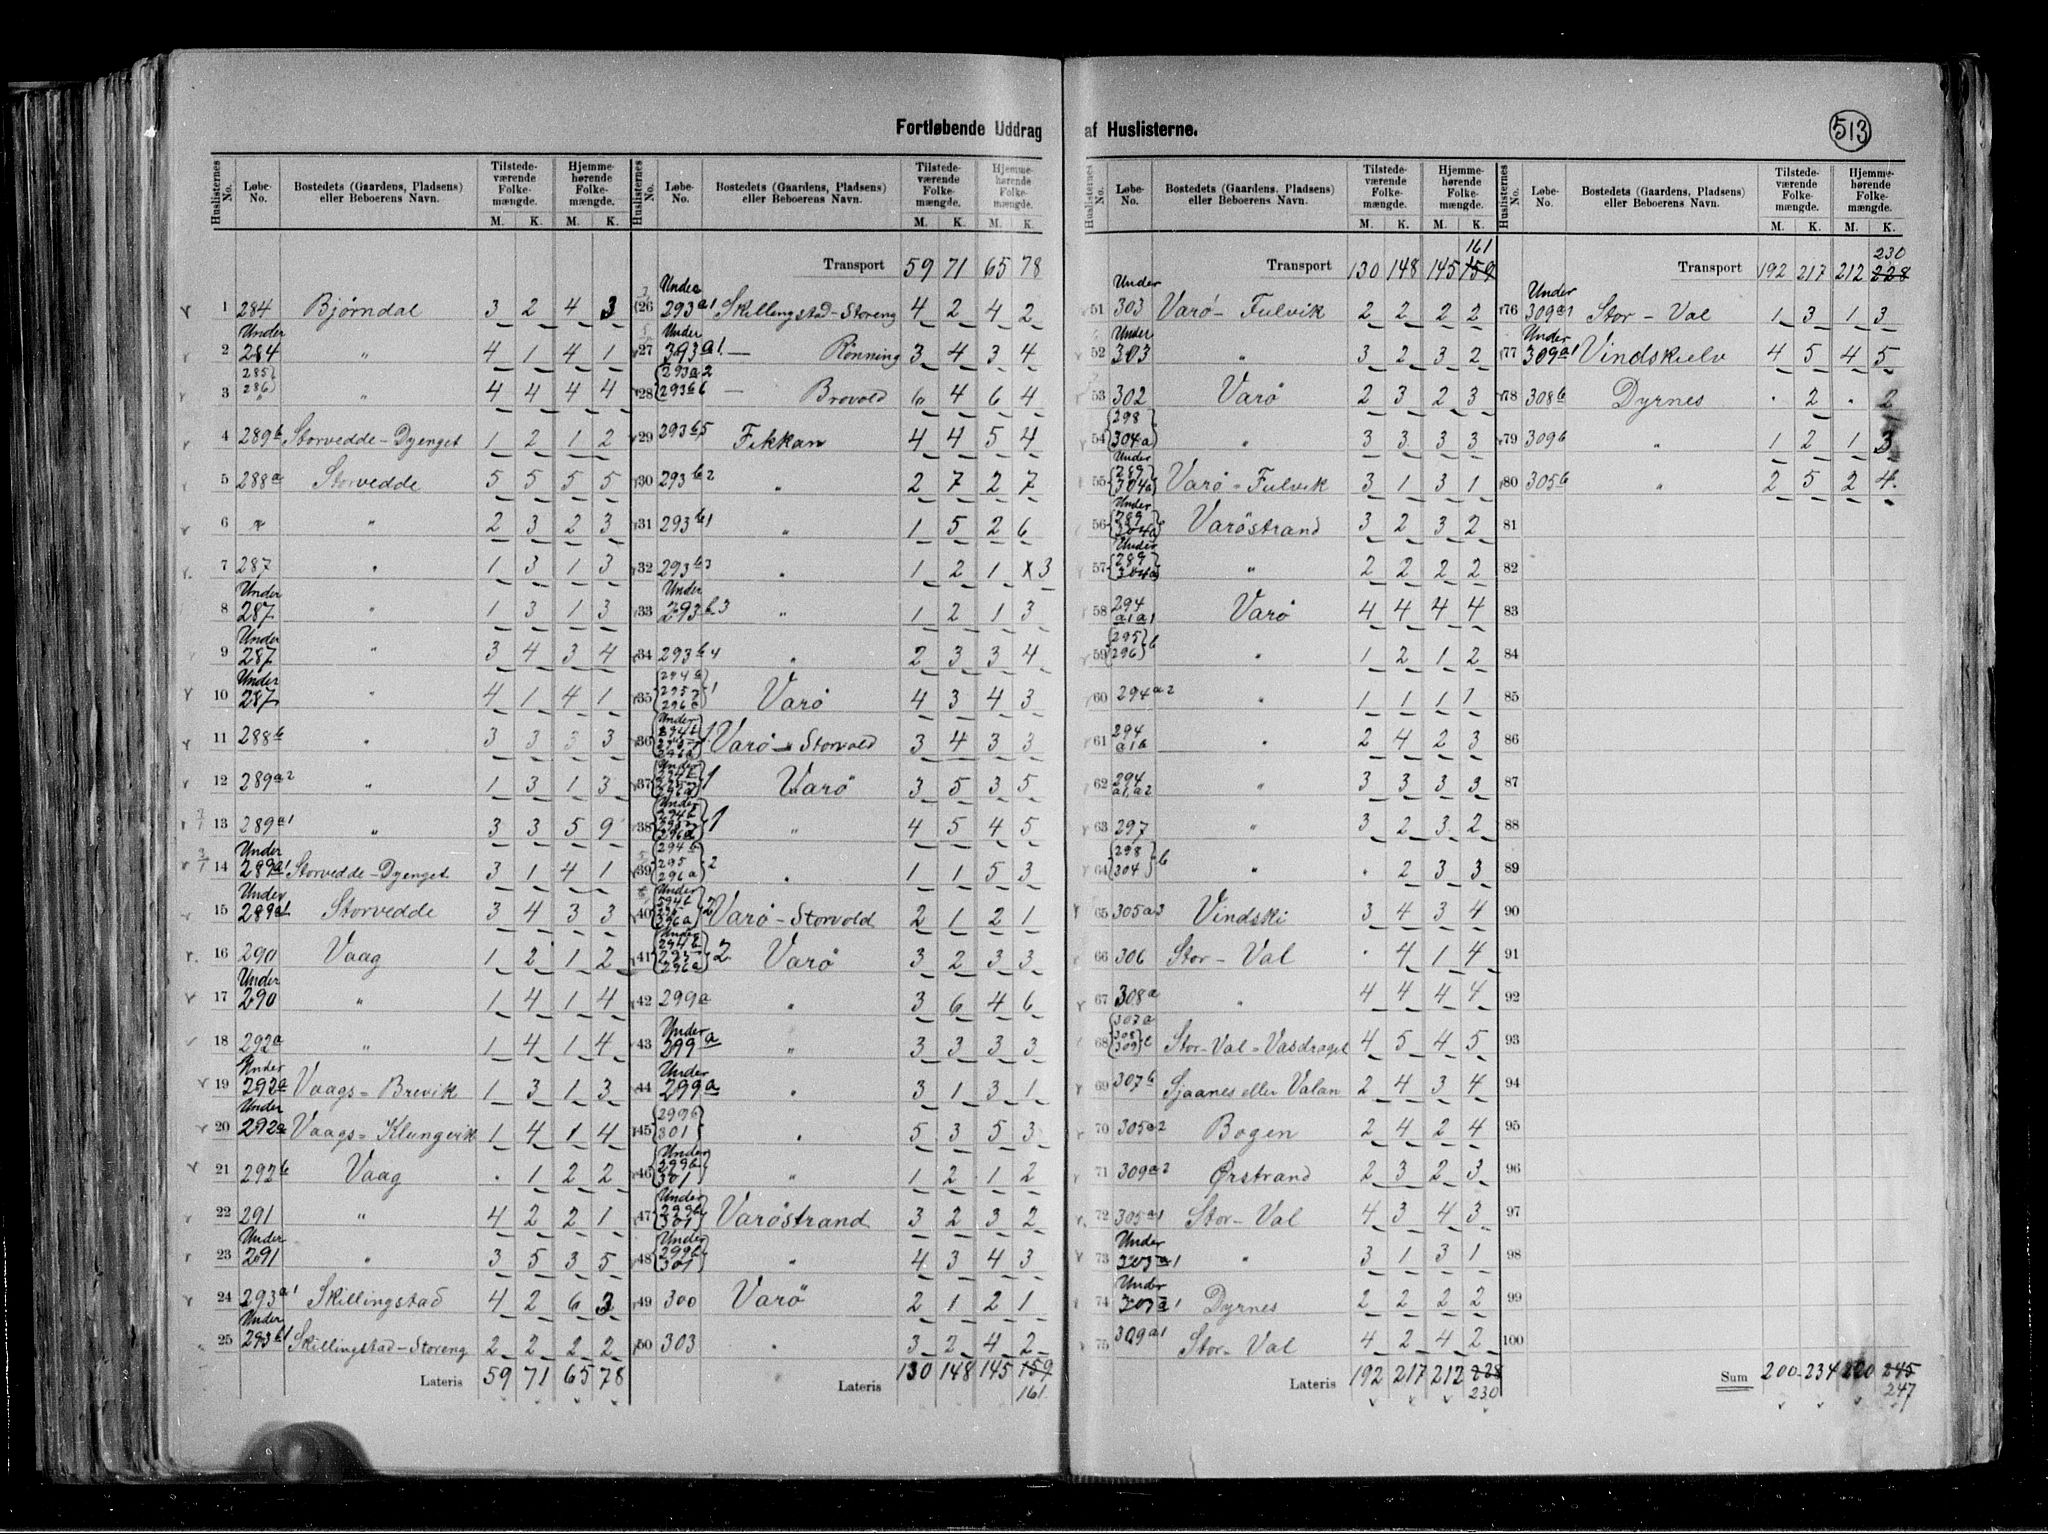 Fortløbende Uddrag af Huslisterne.
513
Huslisternes No. Løbe-No. Bostedets (Gaardens, Pladsens) eller Beboerens Navn. Tilstedeværende Folkemængde. M. K. Hjemmehørende Folkemængde. M. K.
1 284 Bjørndal 3 2 4 3
2 Under 284 " 4 1 4 1
3 285 286 " 4 4 4 4
4 289b Storvedde-Dyenget 1 2 1 2
5 288a Storvedde 5 5 5 5
6 " " 2 3 2 3
7 287 " 1 3 1 3
8 Under 287 " 1 3 1 3
9 Under 287 " 3 4 3 4
10 Under 287 " 4 1 4 1
11 288b " 3 3 3 3
12 289a2 " 1 3 1 3
13 289a1 " 3 3 5 9
14 Under 289a1 Storvedde-Dyenget 3 1 4 1
15 Under 289a1 Storvedde 3 4 3 3
16 290 Vaag 1 2 1 2
17 Under 290 " 1 4 1 4
18 292a " 1 4 1 4
19 Under 292a Vaags=Brevik 1 3 1 3
20 Under 292a Vaags=Klungvik 1 4 1 4
21 292b Vaag . 1 2 2
22 291 " 4 2 2 1
23 Under 291 " 3 5 3 5
24 293a1 Skillingstad 4 2 6 3
25 Under 293b1 Skillingstad-Storeng 2 2 2 2
Lateris 59 71 65 78
Huslisternes No. Løbe-No. Bostedets (Gaardens, Pladsens) eller Beboerens Navn. Tilstedeværende Folkemængde. M. K. Hjemmehørende Folkemængde. M. K.
Transport 59 71 65 78
26 Under 293a1 Skillingstad-Storeng 4 2 4 2
27 Under 293a1. — Rønning 3 4 3 4
28 293a2 293b6 — Brovold 6 4 6 4
29 293b5 Fikkan 4 4 5 4
30 293b2 " 2 7 2 7
31 293b1 " 1 5 2 6
32 293b3 " 1 2 1 x 3
33 Under 293b3 " 1 2 1 3
34 293b4 " 2 3 3 4
35 294b 295 296a 1 Varø 4 3 4 3
36 Under 294b 295 296a 1 Varø-Storvold 3 4 3 3
37 Under 294b 295 296a 1 Varø 3 5 3 5
38 Under 294b 295 296a 1 " 4 5 4 5
39 294b 295 296a 2 " 1 1 5 3
40 Under 294b 295 296a 2 Varø-Storvold 2 1 2 1
41 Under 294b 295 296a 2 Varø 3 2 3 3
42 299a " 3 6 4 6
43 Under 299a " 3 3 3 3
44 Under 299a " 3 1 3 1
45 299b 301 " 5 3 5 3
46 Under 299b 301 " 1 2 1 2
47 Under 299b 301 Varøstrand 3 2 3 2
48 Under 299b 301 " 4 3 4 3
49 300 Varø 2 1 2 1
50 303 " 3 2 4 2
Lateris 130 148 145 159
161
Huslisternes No. Løbe-No. Bostedets (Gaardens, Pladsens) eller Beboerens Navn. Tilstedeværende Folkemængde. M. K. Hjemmehørende Folkemængde. M. K.
161
Transport 130 148 145 159
51 Under 303 Varø-Fulvik 2 2 2 2
52 Under 303 " 3 2 3 2
53 302 Varø 2 3 2 3
54 298 304a " 3 3 3 3
55 Under 289 304a Varø-Fulvik 3 1 3 1
56 Under 289 304a Varøstrand 3 2 3 2
57 Under 289 304a " 2 2 2 2
58 294 a1a1 Varø 4 4 4 4
59 295 296 b " 1 2 1 2
60 294a2 " 1 1 1 1
61 294 a1b " 2 4 2 3
62 294 a1a2 " 3 3 3 3
63 297 " 3 2 3 2
64 298 304 b " . 2 3 3
65 305a3 Vindski 3 4 3 4
66 306 Stor-Val . 4 1 4
67 308a " 4 4 4 4
68 307a 308 309 c Stor-Val-Vasdraget 4 5 4 5
69 307b Sjaanes eller Valan 2 4 3 4
70 305a2 Bogen 2 4 2 4
71 309a2 Ørstrand 2 3 2 3
72 305a1 Stor-Val 4 3 4 3
73 Under 305a1 " 3 1 3 1
74 Under 305a1 Dyrnes 2 2 2 2
75 309a1 Stor-Val 4 2 4 2
Lateris 192 217 212 228
230
Huslisternes No. Løbe-No. Bostedets (Gaardens, Pladsens) eller Beboerens Navn. Tilstedeværende Folkemængde. M. K. Hjemmehørende Folkemængde. M. K.
230
Transport 192 217 212 228
76 Under 309a1 Stor-Val 1 3 1 3
77 Under 309a1 Vindskielv 4 5 4 5
78 308b Dyrnes . 2 . 2
79 309b " 1 2 1 3
80 305b " 2 5 2 4
81
82
83
84
85
86
87
88
89
90
91
92
93
94
95
96
97
98
99
100
Sum 200 234 220 245
247